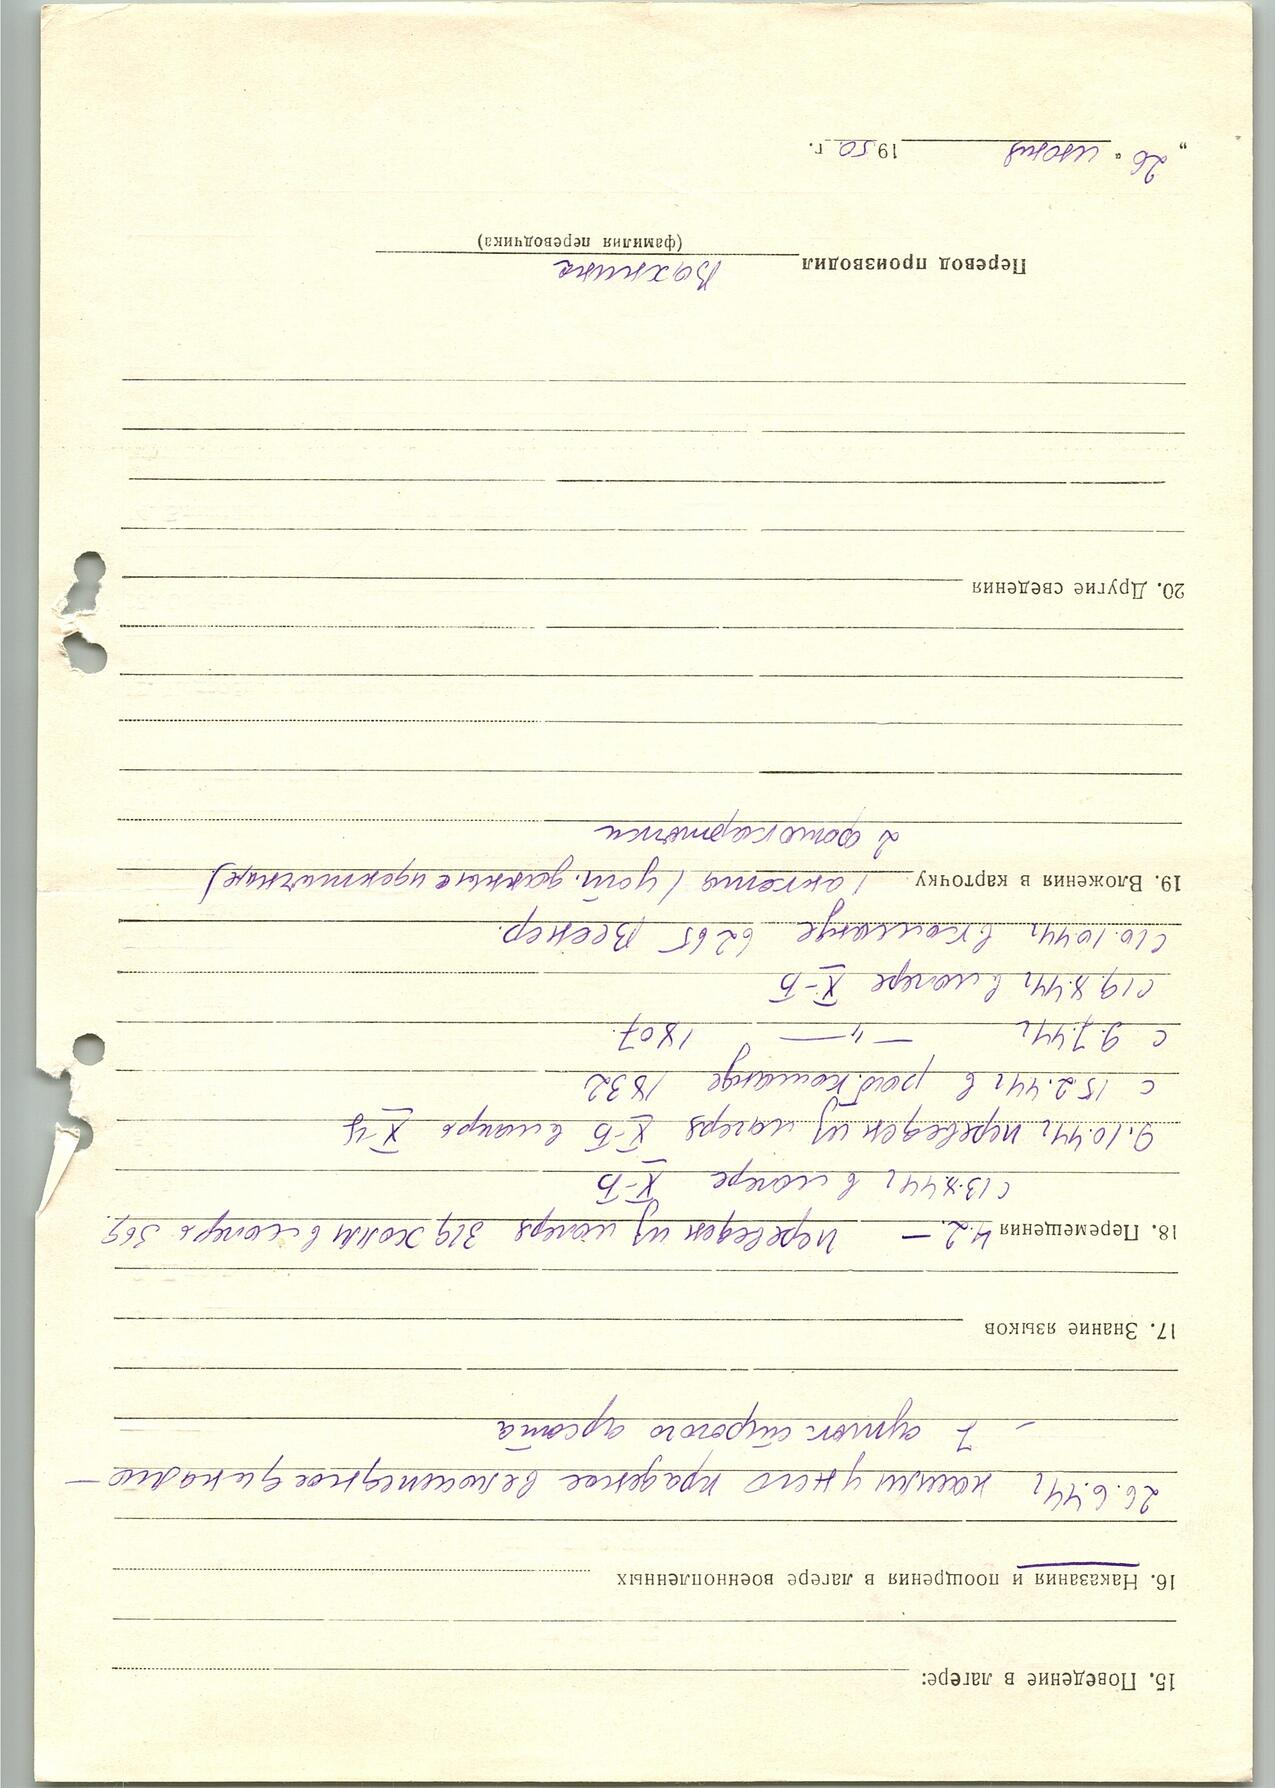 15. Поведение в лагере:
16. Наказания и поощрения в лагере военнопленных
26.6.44г нашли у него краденое велосипедное динамо —
– 7 суток строгого ареста
17. Знание языков
18. Перемещения 4.2. — переведен из лагеря 319 Холм в лагерь 369.
с 13.8.44г в лагере X-Б
9.10.44г переведен из лагеря X-Б в лагерь X-Ц
с 15.2.44г в раб. команде 1832
с 9.7.44г —„— 1807.
с 19.8.44г в лагере X-Б
с 10.10.44г в команде 6265 Веенер.
19. Вложения в карточку 1 анкета (уст. данные идентичные)
2 фотокарточки
20. Другие сведения
Перевод производил Вахнина
(фамилия переводчика)
„ 26 “ июня 1950 г.